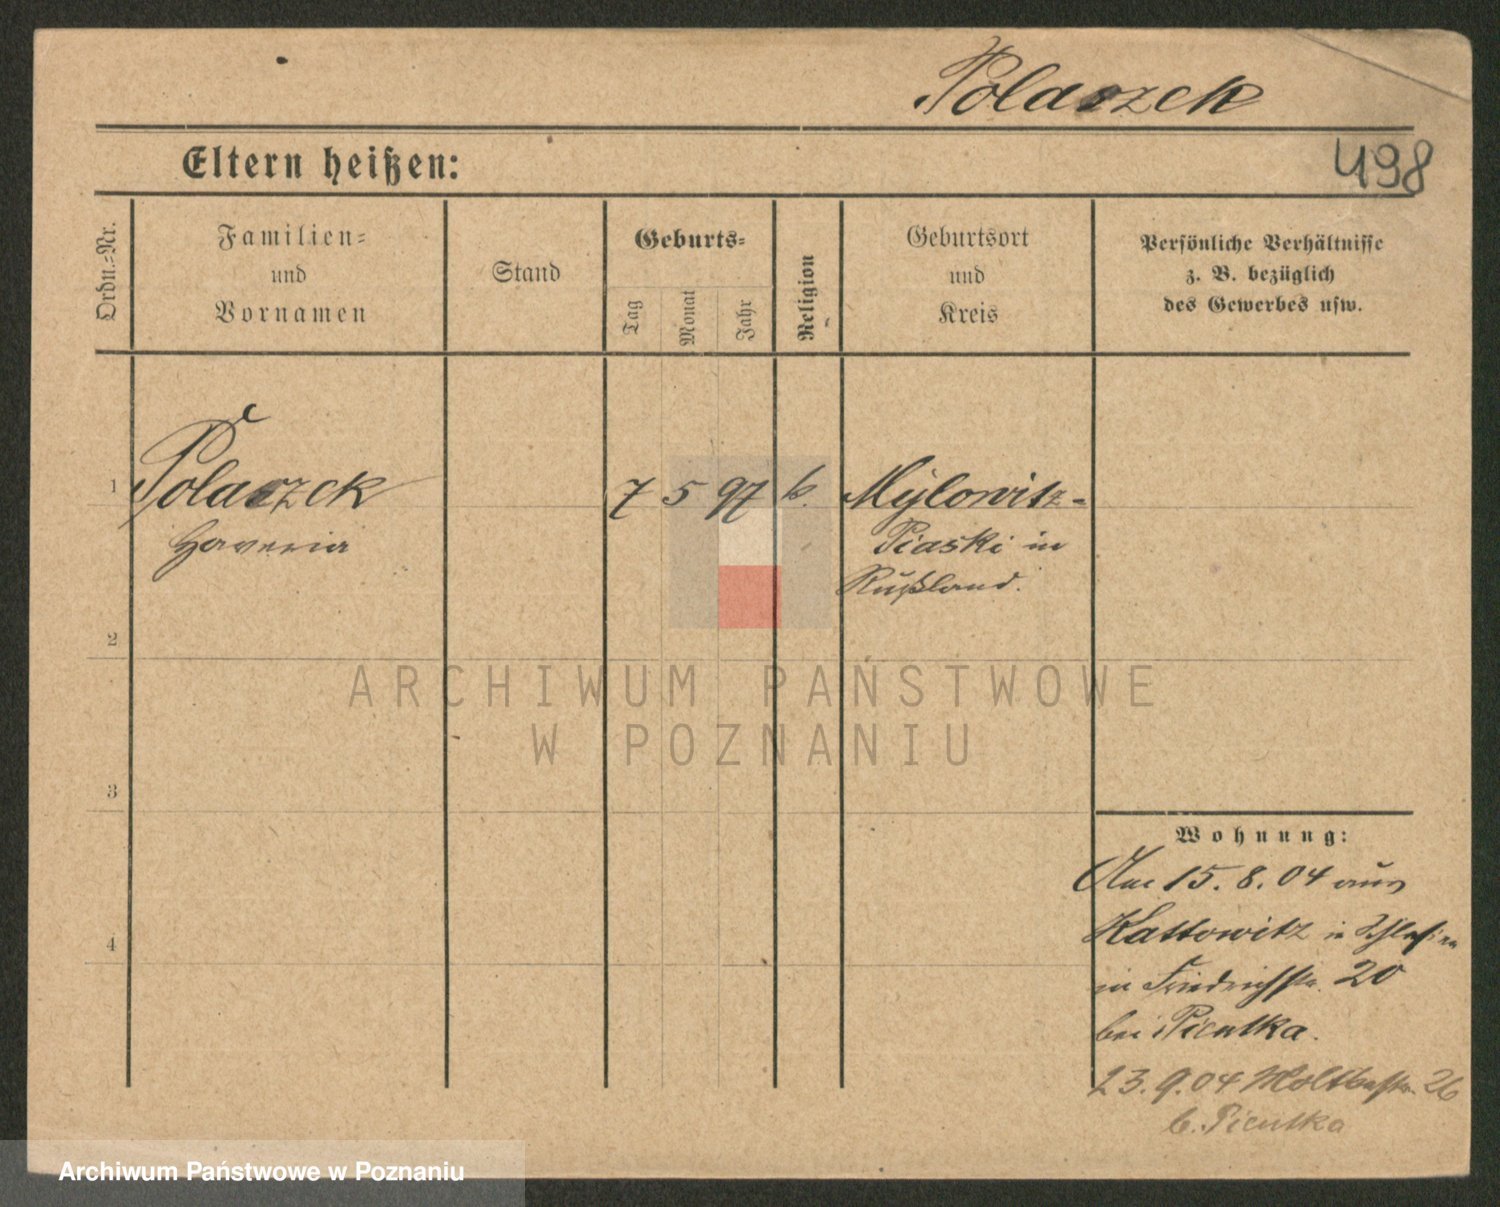 Polaczek
498
Eltern heißen:
Ordn.=Nr.
Familien=
und
Vornamen
Stand
Geburts=
Tag
Monat
Jahr
Religion
Geburtsort
und
Kreis
Persönliche Verhältnisse
z. B. bezüglich
des Gewerbes usw.
1
Polaczek
7 5 97 k. Mylowitz=
Piaski in
Rußland.
2
ARCHIWUM PAŃSTWOWE
W POZNANIU
3
Wohnung:
Am 15. 8. 04 aus
4
Kattowitz in Schlesien
in Friedrichstr. 20
bei Pientka.
23. 9. 04 Moltkestr. 26
b. Pientka
Archiwum Państwowe w Poznaniu